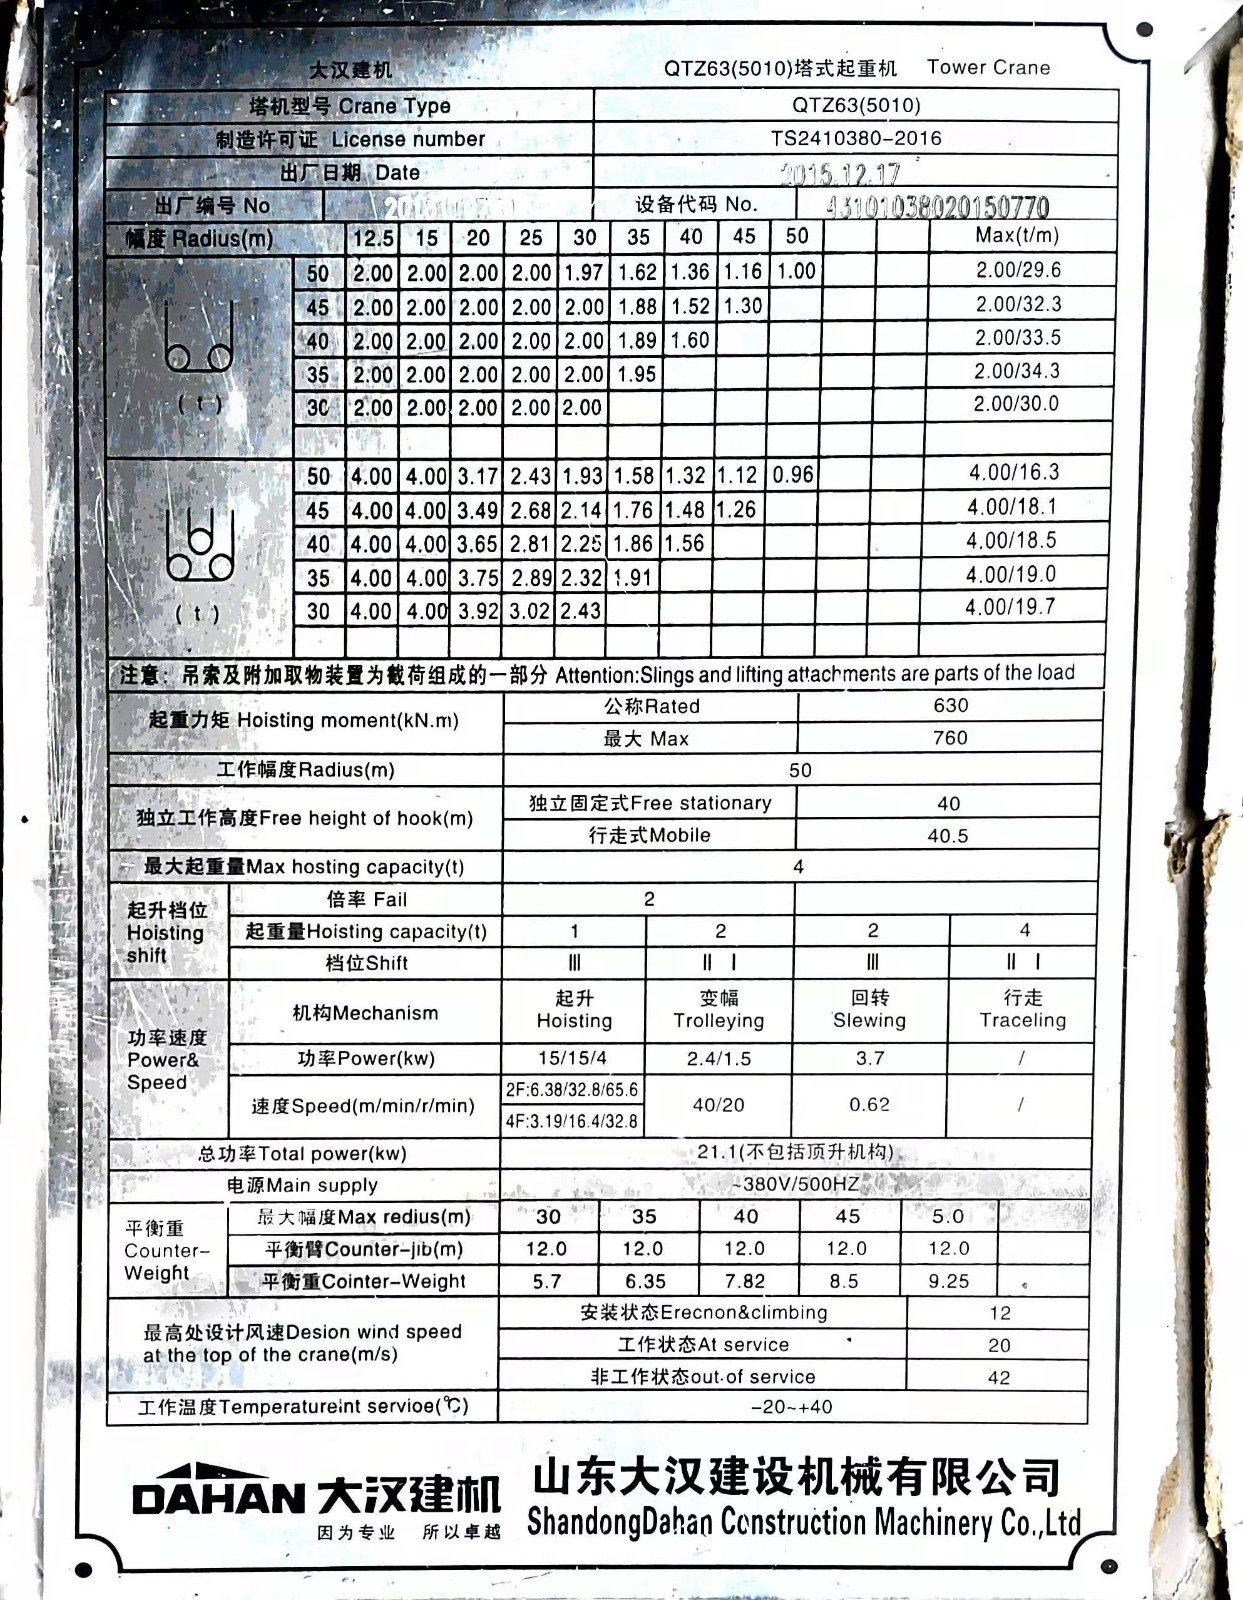 大汉建机 QTZ63(5010)塔式起重机 Tower Crane
塔机型号 Crane Type QTZ63(5010)
制造许可证 License number TS2410380-2016
出厂日期 Date 2015.12.17
出厂编号 No 设备代码 No. 43101038020150770
幅度 Radius(m) 12.5 15 20 25 30 35 40 45 50 Max(t/m)
50 2.00 2.00 2.00 2.00 1.97 1.62 1.36 1.16 1.00 2.00/29.6
45 2.00 2.00 2.00 2.00 2.00 1.88 1.52 1.30 2.00/32.3
40 2.00 2.00 2.00 2.00 2.00 1.89 1.60 2.00/33.5
35 2.00 2.00 2.00 2.00 2.00 1.95 2.00/34.3
(t) 30 2.00 2.00 2.00 2.00 2.00 2.00/30.0
50 4.00 4.00 3.17 2.43 1.93 1.58 1.32 1.12 0.96 4.00/16.3
45 4.00 4.00 3.49 2.68 2.14 1.76 1.48 1.26 4.00/18.1
40 4.00 4.00 3.65 2.81 2.25 1.86 1.56 4.00/18.5
35 4.00 4.00 3.75 2.89 2.32 1.91 4.00/19.0
(t) 30 4.00 4.00 3.92 3.02 2.43 4.00/19.7
注意：吊索及附加取物装置为截荷组成的一部分 Attention:Slings and lifting attachments are parts of the load
起重力矩 Hoisting moment(kN.m) 公称Rated 630
最大 Max 760
工作幅度Radius(m) 50
独立工作高度Free height of hook(m) 独立固定式Free stationary 40
行走式Mobile 40.5
最大起重量Max hosting capacity(t) 4
起升档位 Hoisting shift 倍率 Fail 2
起重量Hoisting capacity(t) 1 2 2 4
档位Shift III II I III II I
功率速度 Power& Speed 机构Mechanism 起升 Hoisting 变幅 Trolleying 回转 Slewing 行走 Traceling
功率Power(kw) 15/15/4 2.4/1.5 3.7 /
速度Speed(m/min/r/min) 2F:6.38/32.8/65.6 40/20 0.62 /
4F:3.19/16.4/32.8
总功率Total power(kw) 21.1(不包括顶升机构)
电源Main supply ~380V/500HZ
平衡重 Counter- Weight 最大幅度Max redius(m) 30 35 40 45 5.0
平衡臂Counter-jib(m) 12.0 12.0 12.0 12.0 12.0
平衡重Cointer-Weight 5.7 6.35 7.82 8.5 9.25
最高处设计风速Desion wind speed at the top of the crane(m/s) 安装状态Erecnon&climbing 12
工作状态At service 20
非工作状态out.of service 42
工作温度Temperatureint servioe(℃) -20~+40
DAHAN 大汉建机 山东大汉建设机械有限公司
因为专业 所以卓越 ShandongDahan Construction Machinery Co.,Ltd